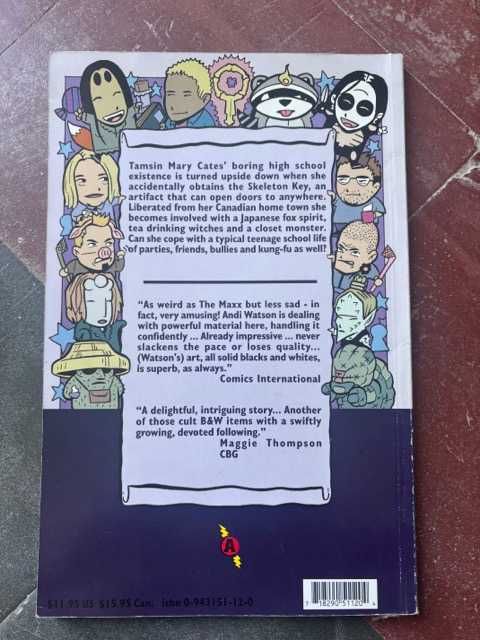 Tamsin Mary Cates' boring high school
existence is turned upside down when she
accidentally obtains the Skeleton Key, an
artifact that can open doors to anywhere.
Liberated from her Canadian home town she
becomes involved with a Japanese fox spirit,
tea drinking witches and a closet monster.
Can she cope with a typical teenage school life
of parties, friends, bullies and kung-fu as well?
"As weird as The Maxx but less sad - in
fact, very amusing! Andi Watson is dealing
with powerful material here, handling it
confidently ... Already impressive ... never
slackens the pace or loses quality...
(Watson's) art, all solid blacks and whites,
is superb, as always."
Comics International
"A delightful, intriguing story... Another
of those cult B&W items with a swiftly
growing, devoted following."
Maggie Thompson
CBG
A
$11.95 US $15.95 Can. isbn 0-943151-12-0
7 18290 51120 4